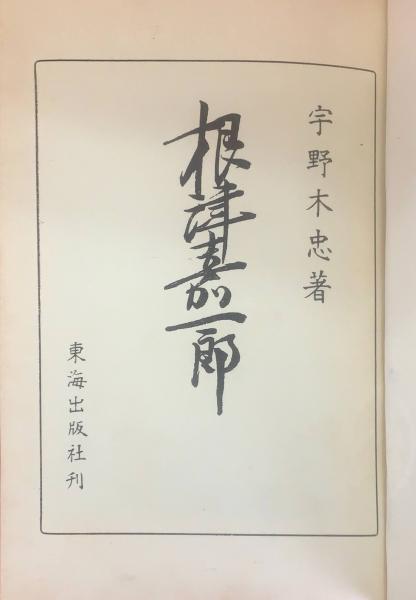 宇野木忠著
根津嘉一郎
東海出版社刊